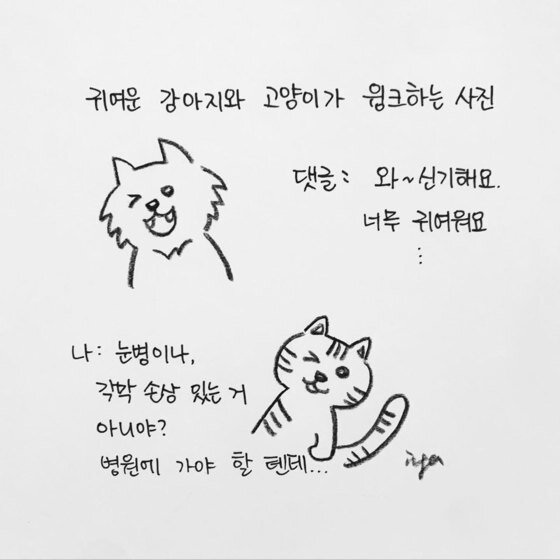 귀여운 강아지와 고양이가 윙크하는 사진
댓글: 와~신기해요.
너무 귀여워요
⋮
나: 눈병이나,
각막 손상 있는 거
아니야?
병원에 가야 할 텐데...